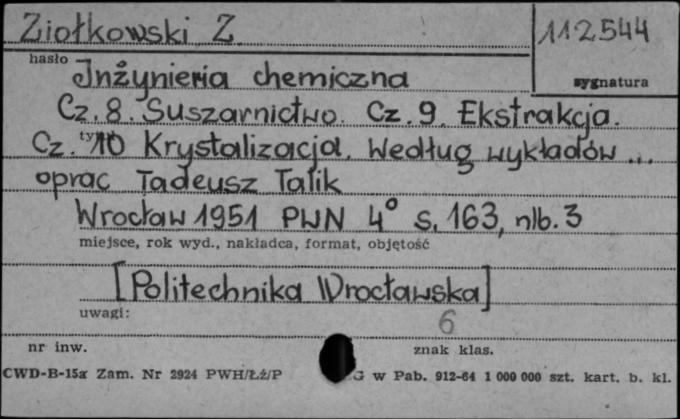 Ziołkowski Z.
112544
hasło
sygnatura
Inżynieria chemiczna
Cz. 8. Suszarnictwo. Cz. 9. Ekstrakcja.
Cz. 10 Krystalizacja. Według wykładów ...
oprac Tadeusz Talik
Wrocław 1951 PWN 4° s. 163, nlb. 3
miejsce, rok wyd., nakładca, format, objętość
[Politechnika Wrocławska]
uwagi:
6
nr inw.
znak klas.
CWD-B-15a Zam. Nr 2924 PWH/Łź/P w Pab. 912-64 1 000 000 szt. kart. b. kl.